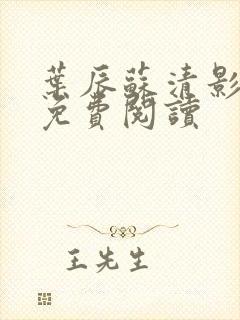 葉辰蘇清影
免費閱讀
王先生